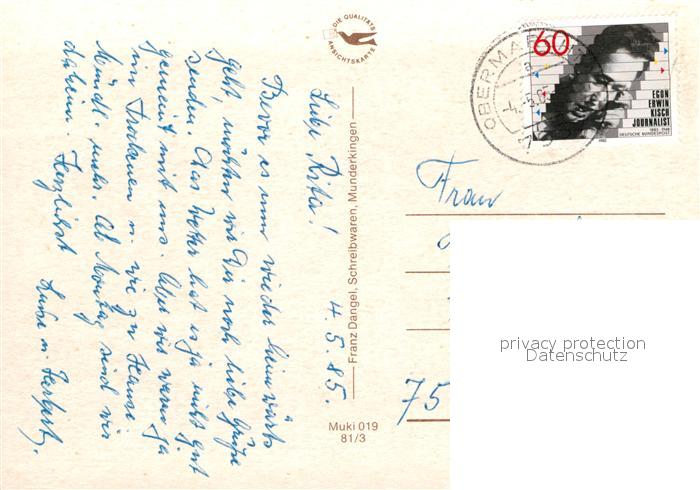 DIE QUALITÄTS
ANSICHTSKARTE
Liebe Rita!
4.5.85.
Bevor es nun wieder heimwärts
geht, möchten wir Dir noch liebe Grüße
senden. Das Wetter hat es ja nicht gut
gemeint mit uns. Aber wir waren ja
im Trockenen u. wie zu Hause.
Mündl. mehr. Ab Montag sind wir
daheim. Herzlichst
Luise u. Herbert.
Franz Dangel, Schreibwaren, Munderkingen
Muki 019
81/3
OBERMAR
a
-4.-5.8
75
60
EGON
ERWIN
KISCH
JOURNALIST
1885-1948
DEUTSCHE BUNDESPOST
1985
Frau
75
privacy protection
Datenschutz